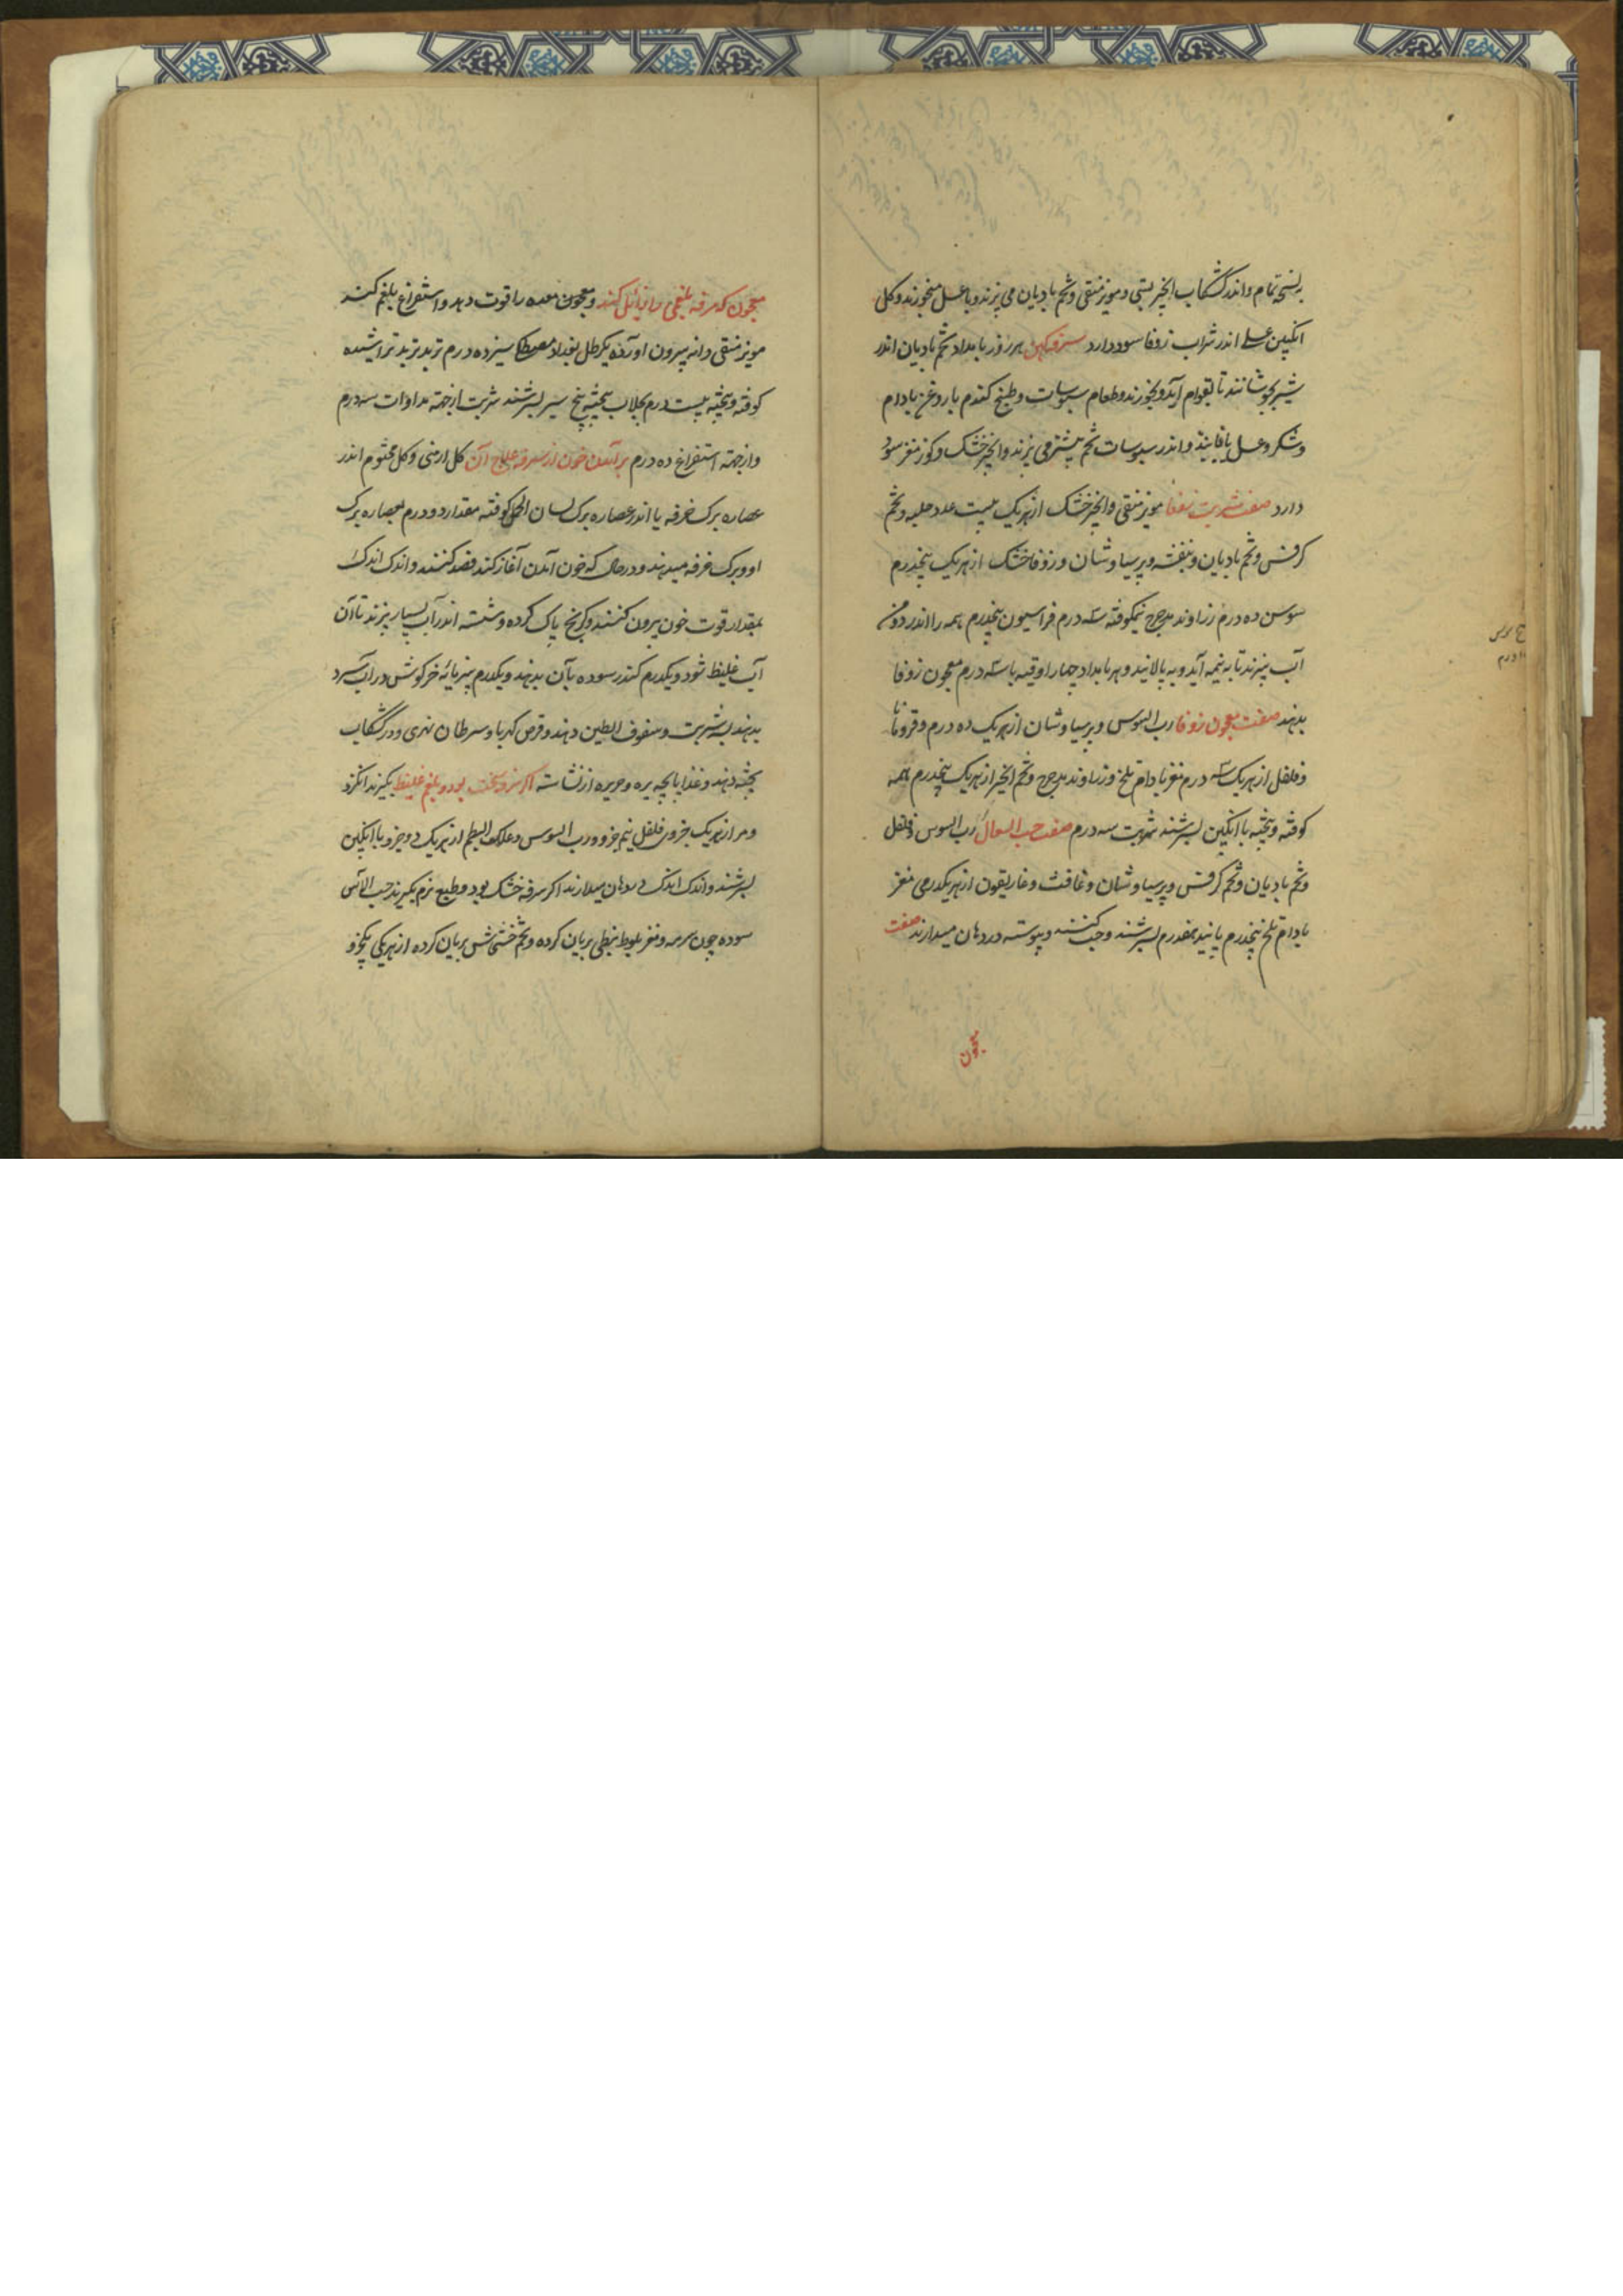 بنسخه تمام و اندر کشکاب انجیر بستی و مویز منقی و تخم بادیان می پزند و با عسل میخورند و کل
انکبین عسلی اندر شراب زوفا سود دارد سرفه کهن هر روز بامداد تخم بادیان اندر
شیر بجوشانند تا بقوام آید و بخورند و طعام سبوسات و طبیخ کندم با روغن بادام
و شکر و عسل یا فانید و اندر سبوسات تخم بیشتر می پزند و انجیر خشک و کوز مغز سود
دارد صفت شربت زوفا مویز منقی و انجیر خشک از هر یک بیست عدد حلبه و تخم
کرفس و تخم بادیان و بنفشه و پرسیاوشان و زوفا خشک از هر یک پنجدرم
سوسن ده درم زراوند مدحرج نیمکوفته سه درم فراسیون پنجدرم همه را اندر دو من
آب بپزند تا به نیمه آید و به پالانید و هر بامداد چهار اوقیه با سه درم معجون زوفا
بدهند صفت معجون زوفا رب السوس و پرسیاوشان از هر یک ده درم و قردمانا
و فلفل از هر یک سه درم مغز بادام تلخ و زراوند مدحرج و تخم انجیر از هر یک پنجدرم همه
کوفته و بیخته با انکبین بسرشند شربت سه درم صفت حب السعال رب السوس و فلفل
و تخم بادیان و تخم کرفس و پرسیاوشان و غافث و غاریقون از هر یکدرمی مغز
بادام تلخ پنجدرم پانید هفدرم بسرشند و حب کنند و پیوسته در دهان میدارند صفت
معجون
معجون که سرفه بلغمی را زایل کند و معجون معده را قوت دهد و استفراغ بلغم کند
مویز منقی دانه بیرون آورده یکرطل بغداد مصطکی سیزده درم تربد تربد تراشیده
کوفته و بیخته بیست درم بجلاب پخته پنج سیر بسرشند شربت از جهته مداوات سه درم
و از جهته استفراغ ده درم بر آمدن خون از سرفه علاج آن کل ارمنی و کل مختوم اندر
عصاره برک خرفه یا اندر عصاره برک لسان الحمل کوفته مقدار دو درم بعصاره برک
او و برک خرفه میدهند و در حال که خون آمدن آغاز کند فصد کنند و اندک اندک
بمقدار قوت خون بیرون کنند و برنج پاک کرده و شسته اندر آب بسیار بپزند تا آن
آب غلیظ شود و یکدرم کندر سوده بآن بدهند و یکدرم پنیر مایه خرکوش در آب سرد
بدهند بشربت و سفوف الطین دهند و قرص کهربا و سرطان نهری و در کشکاب
پخته دهند و غذا پایچه بره و حریره از نشاسته اکر سرفه سخت بود و بلغم غلیظ بکیرند انکزد
و مر از هر یک جزوی فلفل نیم جزو و رب السوس و علک البطم از هر یک دو جزو با انکبین
بسرشند و اندک اندک در دهان میدارند اکر سرفه خشک بود و طبع نرم بکیرند حب الآس
سوده چون سرمه و مغز بلوط نبطی بریان کرده و تخم خشخاش بریان کرده از هر یکی یکجزو